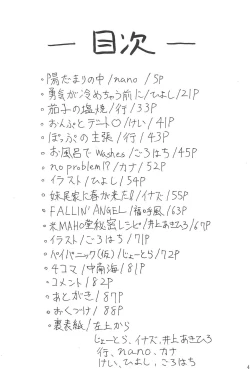 — 目次 —
。陽だまりの中/nano /5P
。勇気が冷めちゃう前に/ひよし/21P
。茄子の塩焼/行/33P
。おんぷとテント○/けい/41P
。ぽっぷの主張/行/43P
。お風呂でwashes/ごろはち/45P
。no problem!?/カナ/52P
。イラスト/ひよし/54P
。妹尾家に春が来た!!/イナズ/55P
。FALLIN' ANGEL/福呼風/63P
。米MAHO堂秘密レシピ/井上あきひろ/67P
。イラスト/ごろはち/71P
。ペイパニック(仮)/じょーとら/72P
。4コマ/中南海/81P
。コメント/82P
。あとがき/87P
。おくづけ/88P
。裏表紙/左上から
じょーとら、イナズ、井上あきひろ
行、nano、カナ
けい、ひよし、ごろはち